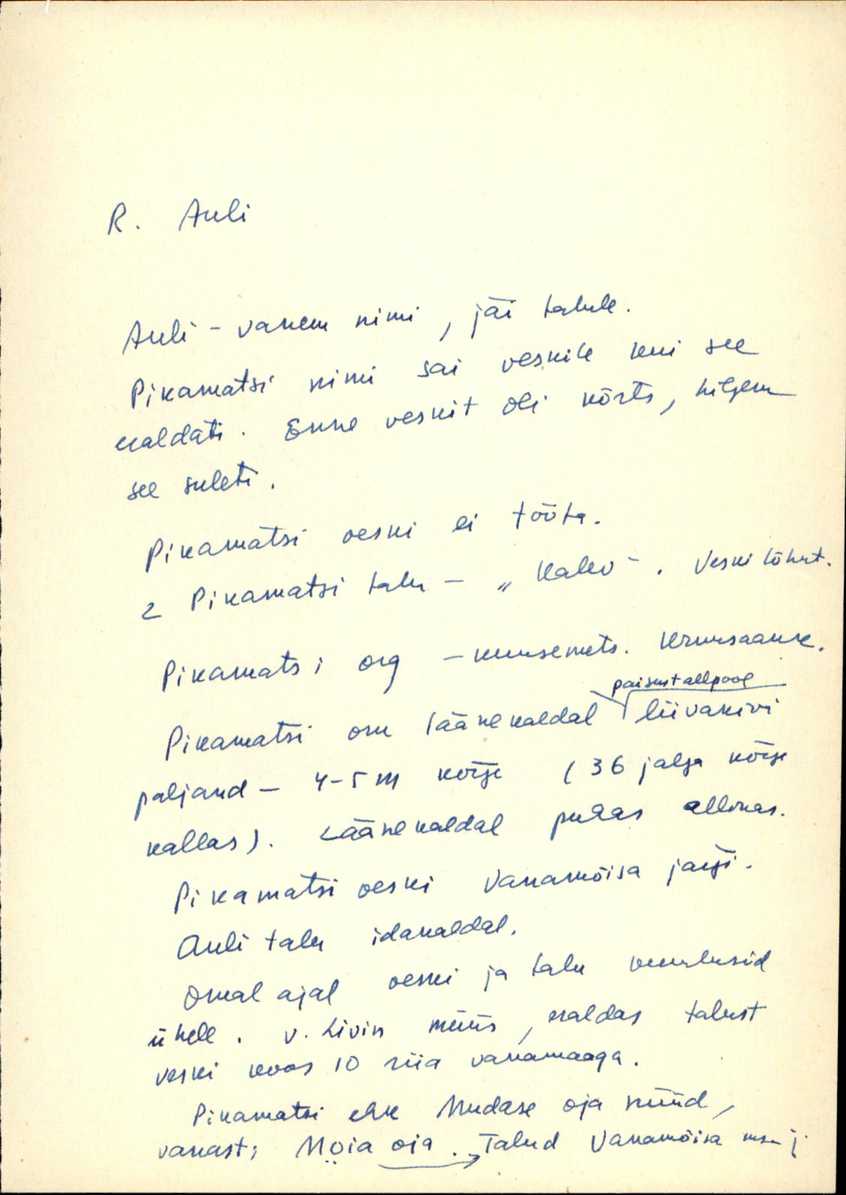 R. Auli
Auli - vanem nimi, jäi talule.
Pikamatsi nimi sai veskile kui see
eraldati. Enne veskit oli kõrts, hiljem
see suleti.
Pikamatsi veski ei tööta.
2 Pikamatsi talu - „Kalev". Veski lõhut.
Pikamatsi org - kuusemets.
paisust allpool
Pikamatsi oru läänekaldal liivakivi
paljand - 4-5 m kõrge (36 jalga kõrge
kallas). Läänekaldal puhas allikas.
Pikamatsi veski Vanamõisa järgi.
Auli talu idakaldal.
Omal ajal veski ja talu kuulusid
ühele. v. Livin müüs, eraldas talust
veski koos 10 riia vanamaaga.
Pikamatsi ehk Mudase oja nüüd,
vanasti Moia oja. Talud Vanamõisa